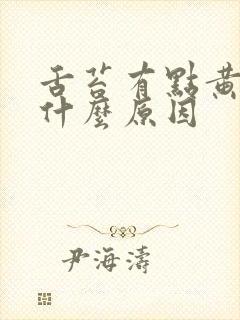 舌苔有點黃
什麼原因
尹海濤